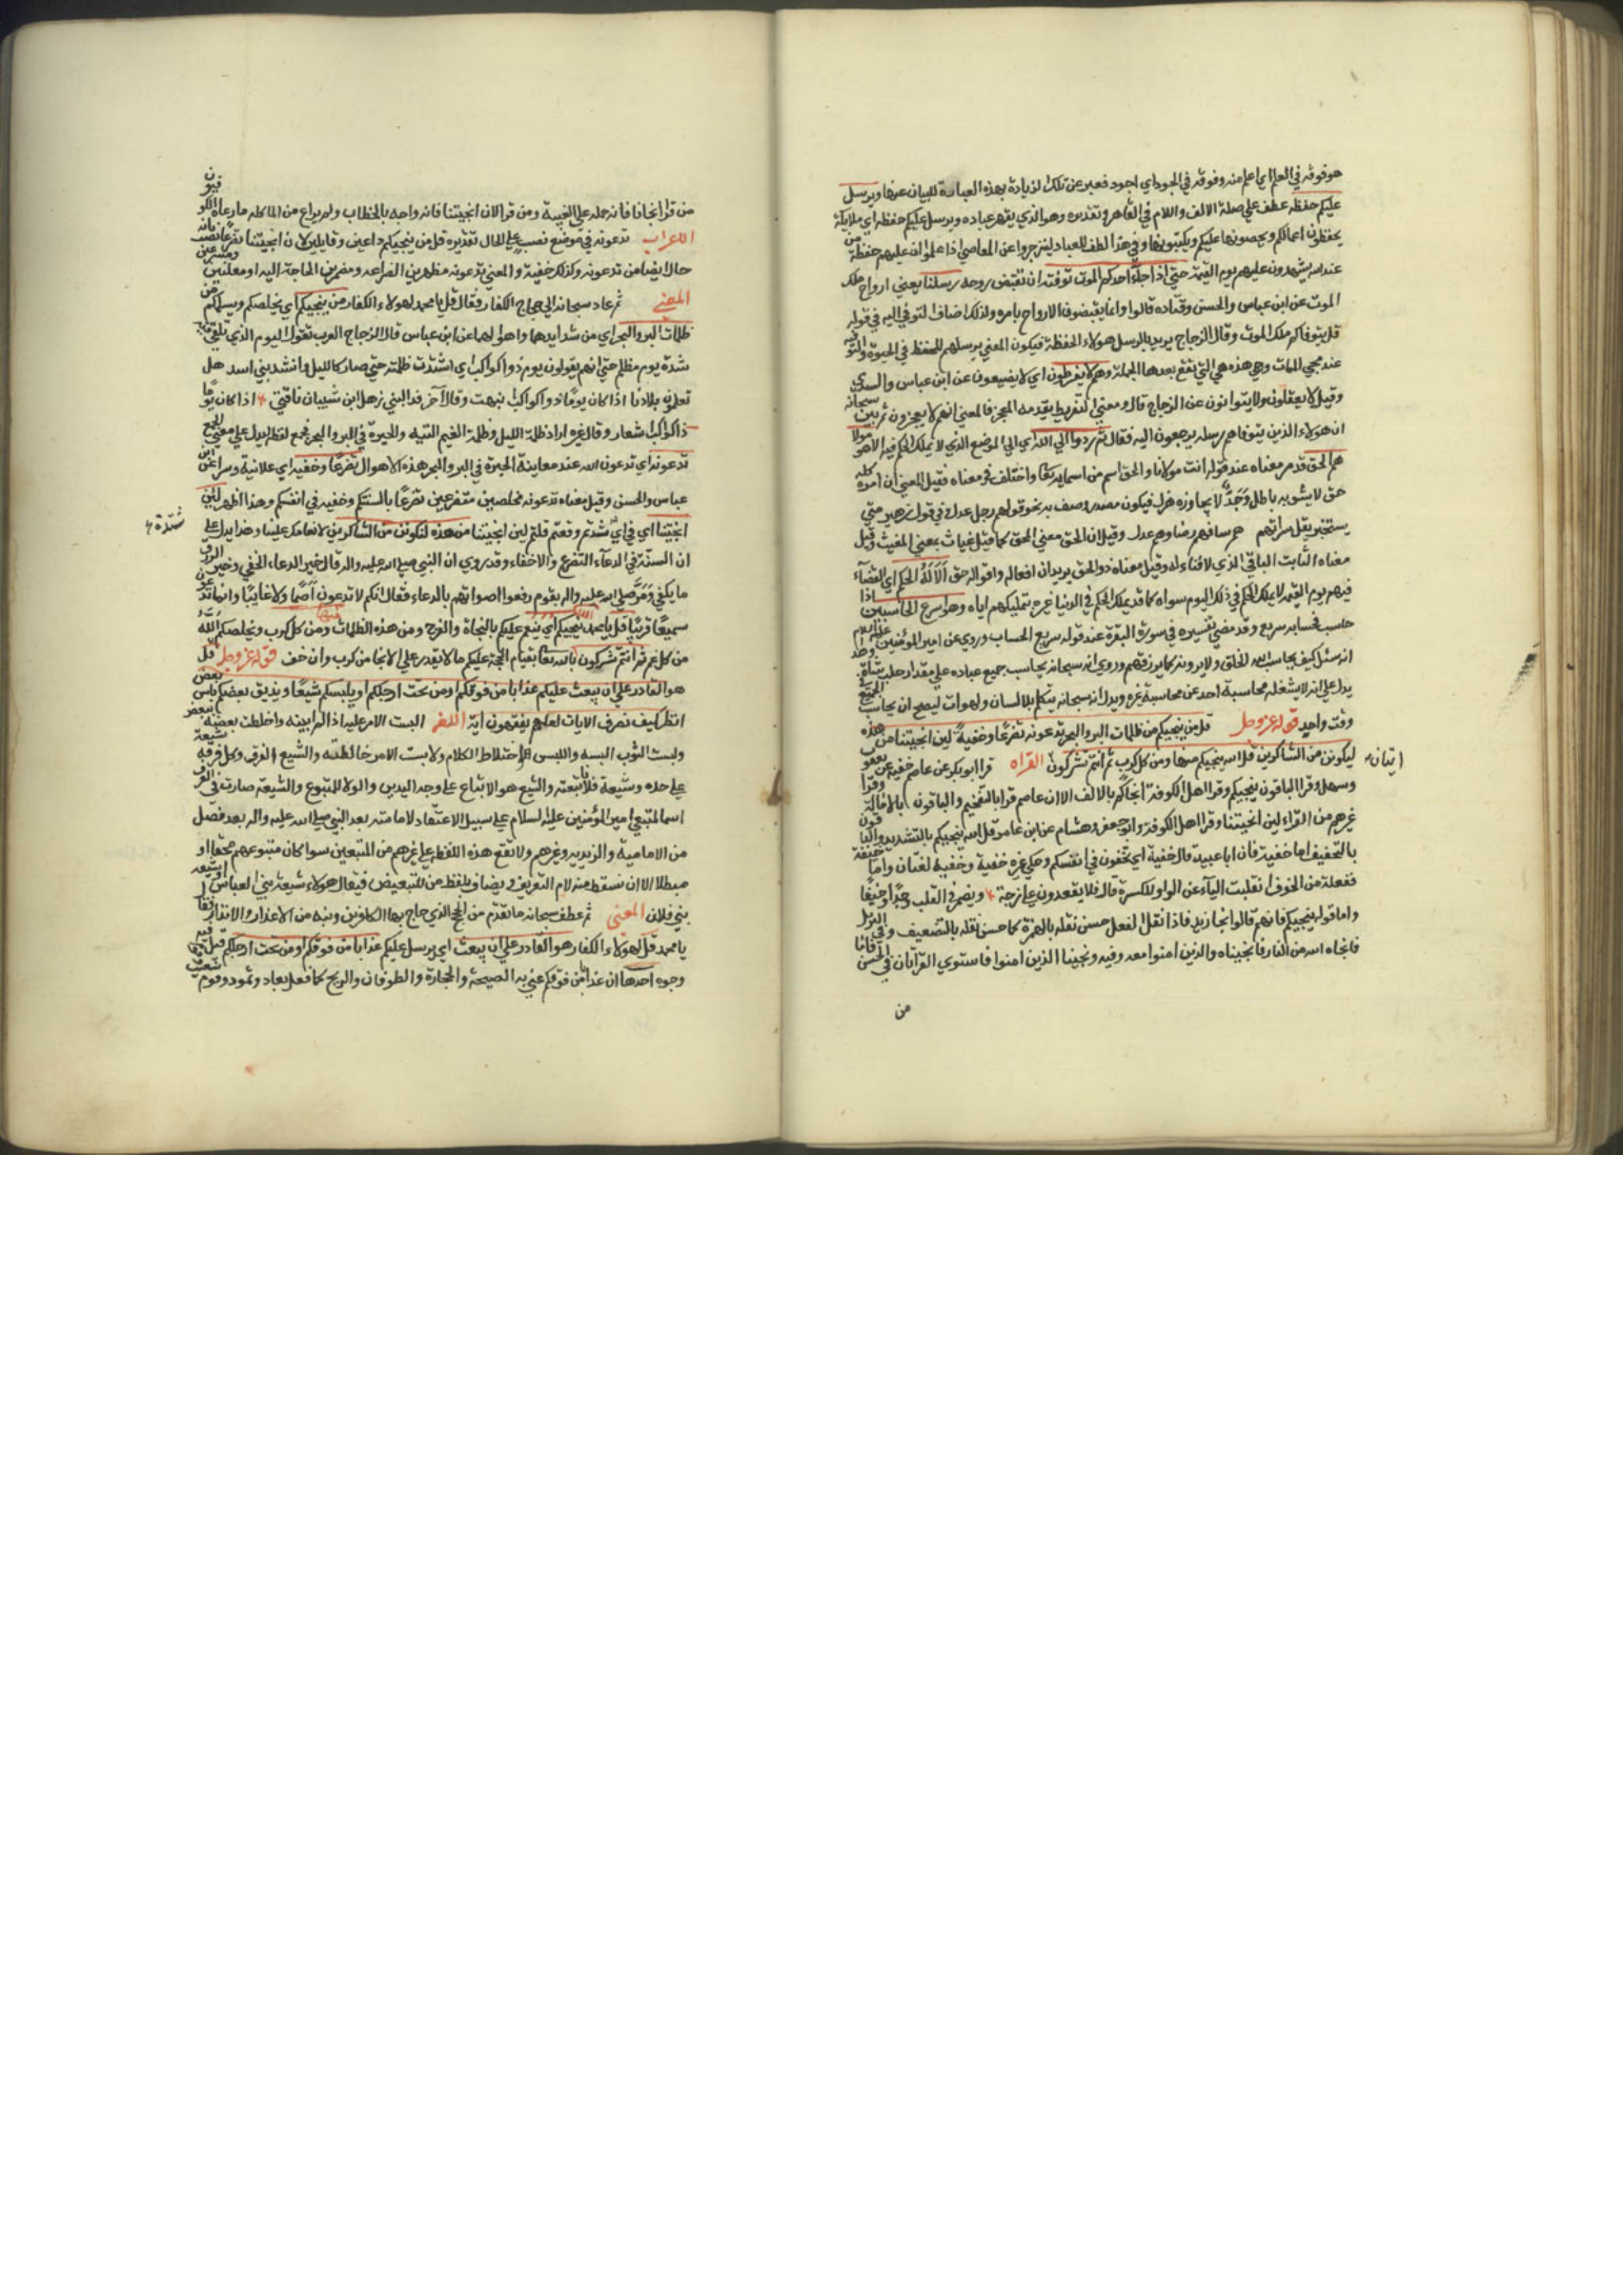 هو فوقه في العلم اي اعلم منه وفوقه في الجود اي اجود فعبر عن تلك الزيادة بهذه العبارة للبيان عنها ويرسل
عليكم حفظة عطف علي صلة الالف واللام في القاهر وتقديره وهو الذي يقهر عباده ويرسل عليكم حفظة اي ملايكة
يحفظون اعمالكم ويحصونها عليكم ويكتبونها وفي هذا لطف للعباد لينزجروا عن المعاصي اذا علموا ان عليهم حفظة من
عند الله يشهدون عليهم يوم القيمة حتي اذا جاء احدكم الموت توفته ان تقبض روحه رسلنا يعني ارواح ملك
الموت عن ابن عباس والحسن وقتاده قالوا وانما يقبضون الارواح بامره ولذلك اضاف التوفي اليه في قوله
قل يتوفاكم ملك الموت وقال الزجاج يريد بالرسل هولاء الحفظة فيكون المعني يرسلهم للحفظ في الحيوة والتوفية
عند مجي الممات وحتي هذه هي التي تقع بعدها الجملة وهم لا يفرطون اي لا يضيعون عن ابن عباس والسدي
وقيل لا يغفلون ولا يتوانون عن الزجاج قال ومعني التفريط تقدمه العجز فالمعني انهم لا يعجزون ثم بين سبحانه
ان هولاء الذين يتوفاهم رسله يرجعون اليه فقال ثم ردوا الي الله اي الي الموضع الذي لا يملك الحكم فيه الا هو مولا
هم الحق قد مر معناه عند قوله انت مولانا والحق اسم من اسمايه تعا واختلف في معناه فقيل المعني ان امره كله
حق لا يشوبه باطل وجد لا يجاوزه هزل فيكون مصدر وصف به نحو قولهم رجل عدل وفي قول زهير متي
يستجر يقل سراتهم هم ساقهم رضا وهم عدل وقيل ان الحق معني المحق كما قيل غياث بمعني المغيث وقيل
معناه الثابت الباقي الذي لا فناء له وقيل معناه ذو الحق يريد ان افعاله واقواله حق الا له الحكم اي القضاء
فيهم يوم القيمة لا يملك الحكم في ذلك اليوم سواه كما قد يملك الحكم في الدنيا غيره بتمليكهم اياه وهو اسرع الحاسبين اذا
حاسب فحسابه سريع وقد مضي تفسيره في سورة البقرة عند قوله سريع الحساب وروي عن امير المؤمنين عليه السلام
انه سئل كيف يحاسب الله الخلق ولا يرونه قال كما يرزقهم وروي انه سبحانه يحاسب جميع عباده علي مقدار حلب شاة وهذا
يدل علي انه لا يشغله محاسبة احد عن محاسبة غيره ويدل انه سبحانه يتكلم بلا لسان ولهوات ليصح ان يحاسب الجميع في
وقت واحد قوله عز وجل قل من ينجيكم من ظلمات البر والبحر تدعونه تضرعا وخفية لين انجيتنا من هذه
ليكونن من الشاكرين قل الله ينجيكم منها ومن كل كرب ثم انتم تشركون ايتان القراه قرا ابو بكر عن عاصم خفية
وسهل وقرا الباقون ينجيكم وقرا اهل الكوفة انجاكم بالالف الا ان عاصم قرا بالتفخيم والباقون بالامالة وقرا
غيرهم من القراء لين انجيتنا وقرا اهل الكوفة وابو جعفر وهشام عن ابن عامر قل الله ينجيكم بالتشديد والباقون
بالتخفيف اما خفية فان ابا عبيدة قال خفية اي تخفون في انفسكم وحكي غيره خفية وخفيه لغتان واما خيفة
ففعلة من الخوف انقلبت الياء عن الواو للكسرة قال فلا يقعدون علي زخة ويضمر في القلب وجدا وخيفا
واما قوله ينجيكم فانهم قالوا نجا زيد فاذا نقل الفعل حسن نقله بالهمزة كما حسن نقله بالتضعيف وفي التنزيل
فانجاه الله من النار فانجيناه والذين امنوا معه وفيه ونجينا الذين امنوا فاستوي القراتان في الحسن فاما
من
من قرا انجانا فانه حمله علي الغيبة ومن قرا لان انجيتنا فانه واجه بالخطاب ولم يراع من المشاكلة ما راعاه الكوفيون
الاعراب تدعونه في موضع نصب علي الحال تقديره قل من ينجيكم داعين وقايلين لان انجيتنا تضرعا نصب
حالا ايضا من تدعونه وكذلك خفية والمعني تدعونه مظهرين الضراعه ومضمرين الحاجة اليه او معلنين
المعني ثم عاد سبحانه الي حجاج الكفار فقال قل يا محمد لهولاء الكفار من ينجيكم اي يخلصكم ويسلمكم من
ظلمات البر والبحر اي من شدايدهما واهوالهما عن ابن عباس قال الزجاج العرب تقول اليوم الذي تلقي فيه
شدة يوم مظلم حتي انهم يقولون يوم ذو كواكب اي اشتدت ظلمته حتي صار كالليل وانشد بني اسد هل
تعلمون بلادنا اذا كان يوما ذو اكواكب وقال آخر فدا لبني ذهل ابن شيبان ناقتي اذا كان يوما
ذا كواكب اشعار وقال غيره اراد ظلمة الليل وظلمة الغيم التيه والحيرة في البر والبحر فجمع لفظه ليدل علي معني الجمع
تدعونه اي تدعون الله عند معاينة الحيرة في البر والبحر هذه الاهوال تضرعا وخفيه اي علانية وسرا عن ابن
عباس والحسن وقيل معناه تدعونه مخلصين متضرعين تضرعا بالسنتكم وخفيه في انفسكم وهذا اظهر لئن
انجيتنا اي في اي شدة وقعتم قلتم لين انجيتنا من هذه لنكونن من الشاكرين لانعامك علينا وهذا يدل علي
شدة
ان السنة في الدعاء التضرع والاخفاء وقد روي ان النبي صلي الله عليه واله قال خير الدعاء الخفي وخير الرزق
ما يكفي ومر صلي الله عليه واله بقوم رفعوا اصواتهم بالدعاء فقال انكم لا تدعون اصما ولا غايبا وانما تدعون
سميعا قريبا قل يا محمد الله ينجيكم اي ينعم عليكم بالنجاة والفرج منها ومن هذه الظلمات ومن كل كرب ويخلصكم الله
من كل غم ثم انتم تشركون بالله تعا بقيام الحجة عليكم ما لا يقدر علي الانجا من كرب وان خف قوله عز وجل قل
هو القادر علي ان يبعث عليكم عذابا من فوقكم او من تحت ارجلكم او يلبسكم شيعا ويذيق بعضكم باس بعض
انظر كيف نصرف الايات لعلهم يفقهون ايه اللغه البست الامر عليه اذا لم ابينه واخلطت بعضه ببعض
ولبست الثوب البسه واللبس اختلاط الكلام ولابست الامر خالطته والشيع الفرق وكل فرقه شيعة
علي حده وشيعة فلانا تبعته والتشيع هو الاتباع علي وجه التدين والولا للمتبوع والشيعة صارت في العرف
اسما لمتبعي امير المؤمنين عليه السلام علي سبيل الاعتقاد لامامته بعد النبي صلي الله عليه واله بعد فصل
من الامامية والزيديه وغيرهم ولا تقع هذه اللفظه علي غيرهم من المتبعين سوا كان متبوعهم محقا او
مبطلا الا ان تسقط منه لام التعريف ويضاف بلفظ من للتبعيض فيقال هولاء شيعة بني العباس او شيعه
بني فلان المعني ثم عطف سبحانه ما تقدم من الحجج الذي حاج بها الكافرين ونبه من الاعذار والانذار فقال
يا محمد قل لهولاء الكفار هو القادر علي ان يبعث اي يرسل عليكم عذابا من فوقكم او من تحت ارجلكم قيل فيه
وجوه احدها ان عذابا من فوقكم عني به الصيحة والحجارة والطوفان والريح كما فعل بعاد وثمود وقوم شعيب